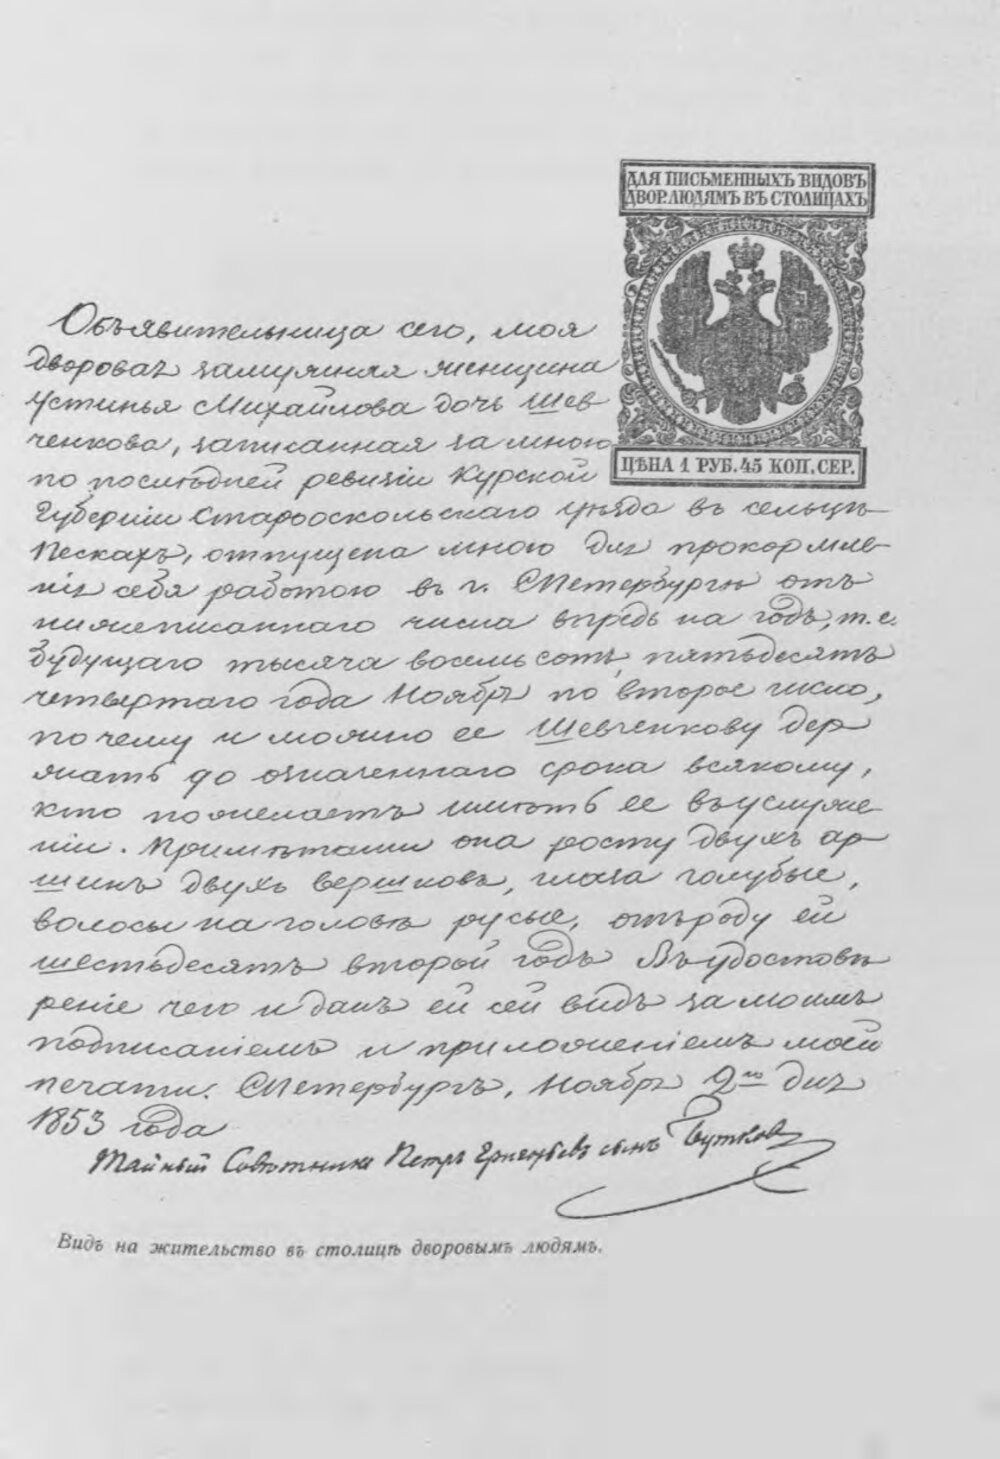 ДЛЯ ПИСЬМЕННЫХЪ ВИДОВЪ
ДВОР.ЛЮДЯМЪ ВЪ СТОЛИЦАХЪ
ЦѢНА 1 РУБ. 45 КОП. СЕР.
Объявительница сего, моя
дворовая замужняя женщина
Устинья Михайлова дочь Шев
ченкова, записанная за мною
по послѣдней ревизіи Курской
Губерніи Старооскольскаго уѣзда въ сельцѣ
Пескахъ, отпущена мною для прокормле-
нія себя работою въ г. СПетербургѣ отъ
нижеписаннаго числа впредь на годъ, т. е.
будущаго тысяча восемьсотъ пятьдесятъ
четвертаго года Ноября по второе число,
почему и можно ее Шевченкову дер
жать до означеннаго срока всякому,
кто пожелаетъ имѣть ее въ услуже-
ніи. Примѣтами она росту двухъ ар-
шинъ двухъ вершковъ, глаза голубые,
волосы на головѣ русые, отъ роду ей
шестьдесятъ второй годъ. Въ удостовѣ
реніе чего и данъ ей сей видъ за моимъ
подписаніемъ и приложеніемъ моей
печати. СПетербургъ, Ноября 2го дня
1853 года
Тайный Совѣтникъ Петръ Григорьевъ сынъ Бутковъ
Видъ на жительство въ столицѣ дворовымъ людямъ.